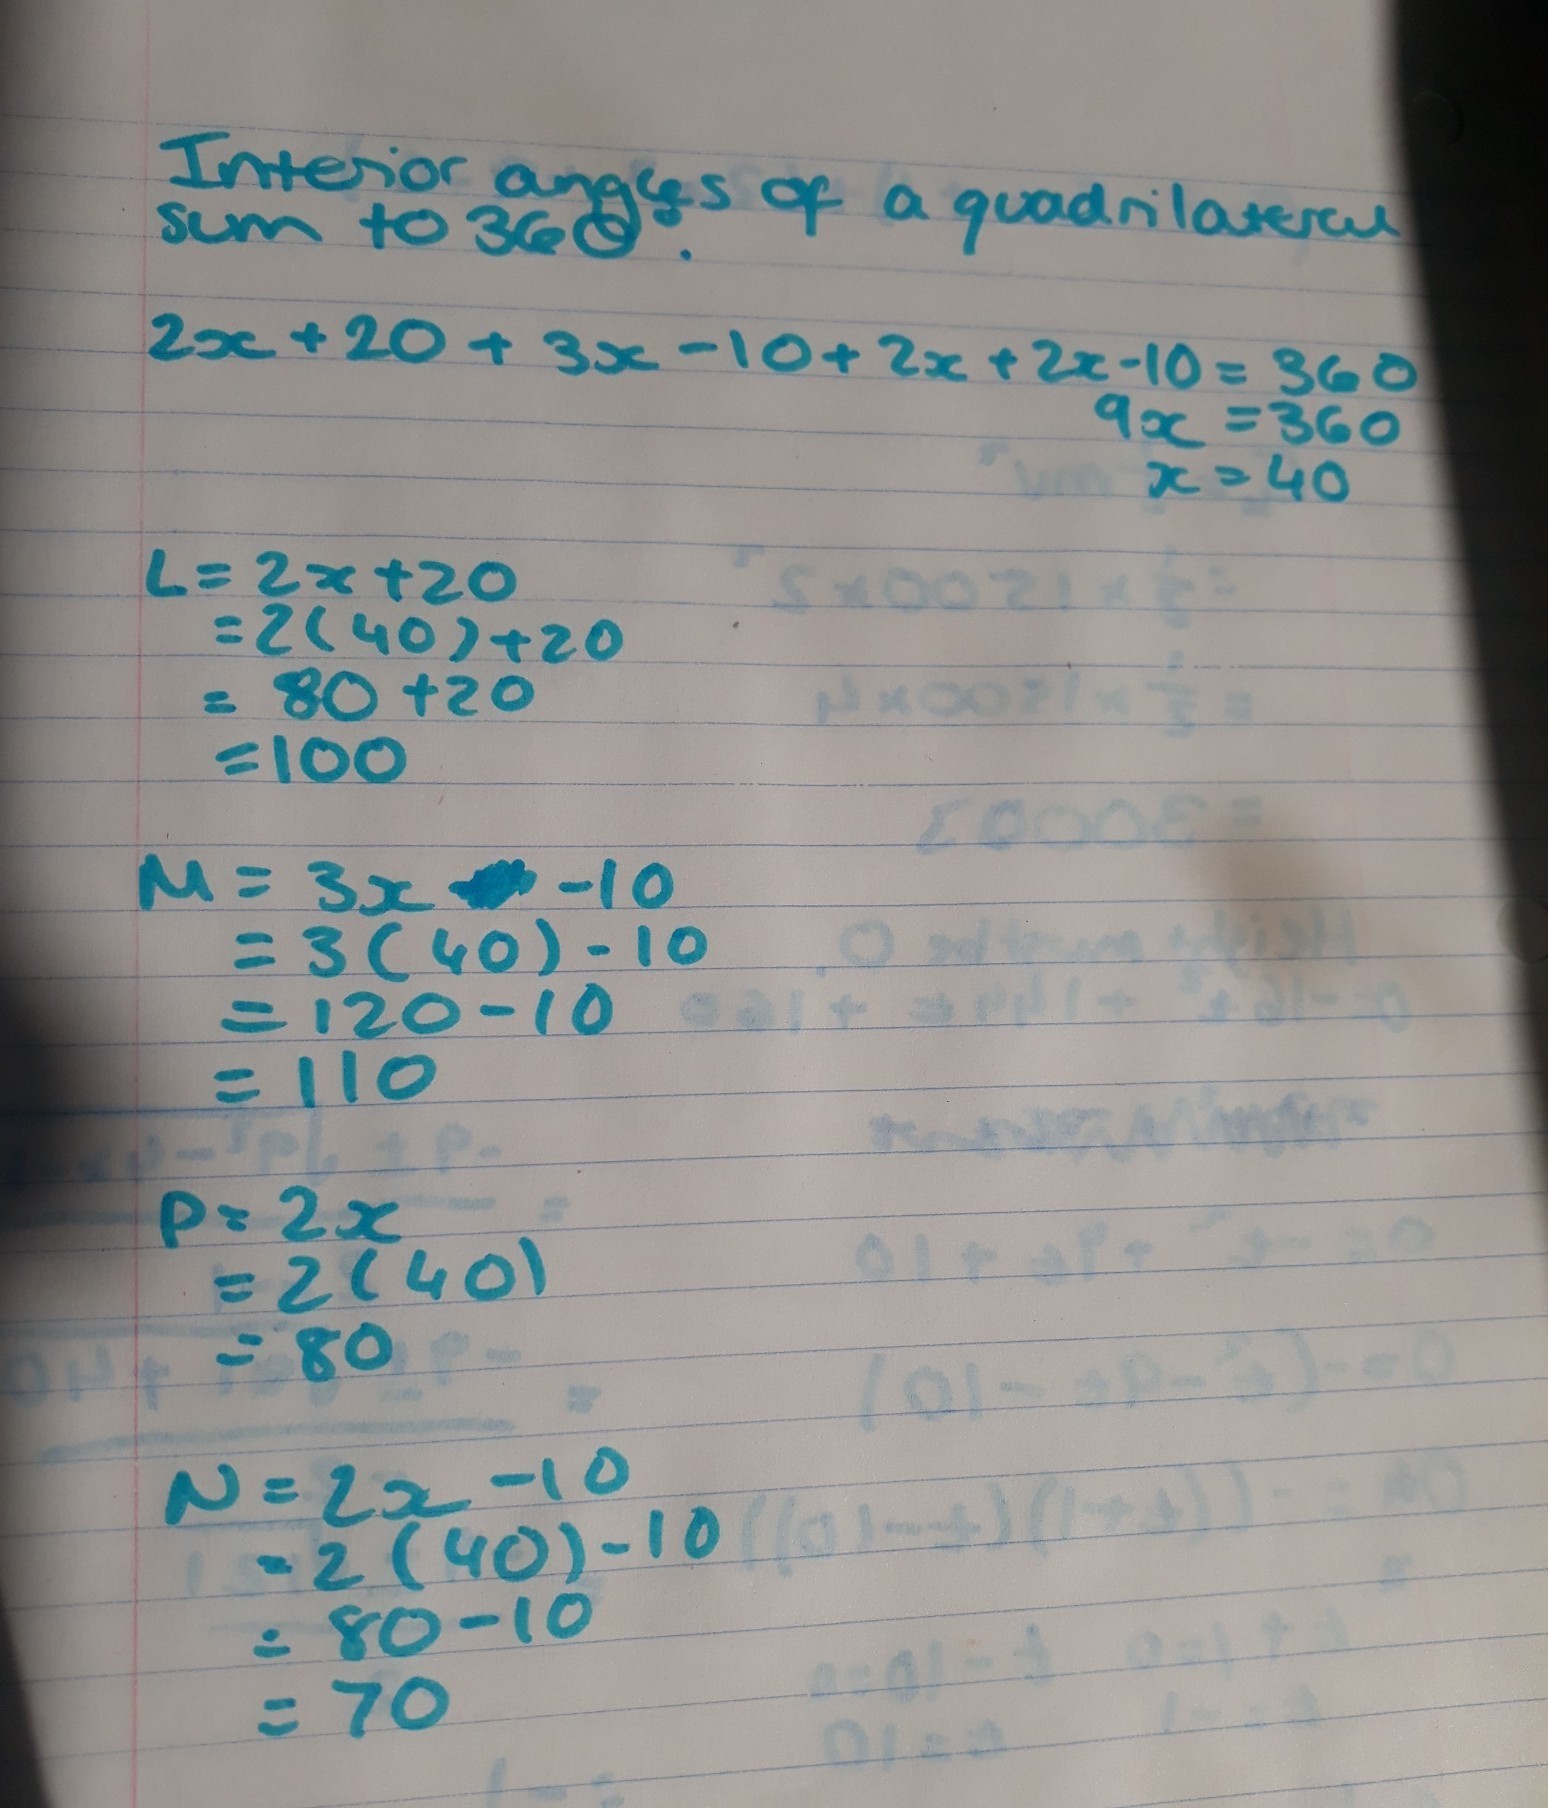 Interior angles of a quadrilateral
sum to 360°.
2x + 20 + 3x - 10 + 2x + 2x - 10 = 360
9x = 360
x = 40
L = 2x + 20
= 2(40) + 20
= 80 + 20
= 100
M = 3x - 10
= 3(40) - 10
= 120 - 10
= 110
P = 2x
= 2(40)
= 80
N = 2x - 10
= 2(40) - 10
= 80 - 10
= 70